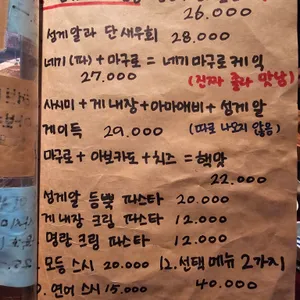 26.000
성게 알과 단 새우회 28.000
네기(파)+마구로 = 네기 마구로 케익
27.000 (진짜 졸라 맛남)
사시미 + 게 내장 + 아마애비 + 성게 알
게이득 29.000 (따로 나오지 않음)
마구로 + 아보카도 + 치즈 = 핵맛
22.000
성게알 듬뿍 파스타 20.000
게 내장 크림 파스타 12.000
명란 크림 파스타 12.000
모둠 스시 20.000 12. 선택 메뉴 2가지
연어 스시 15.000 40.000